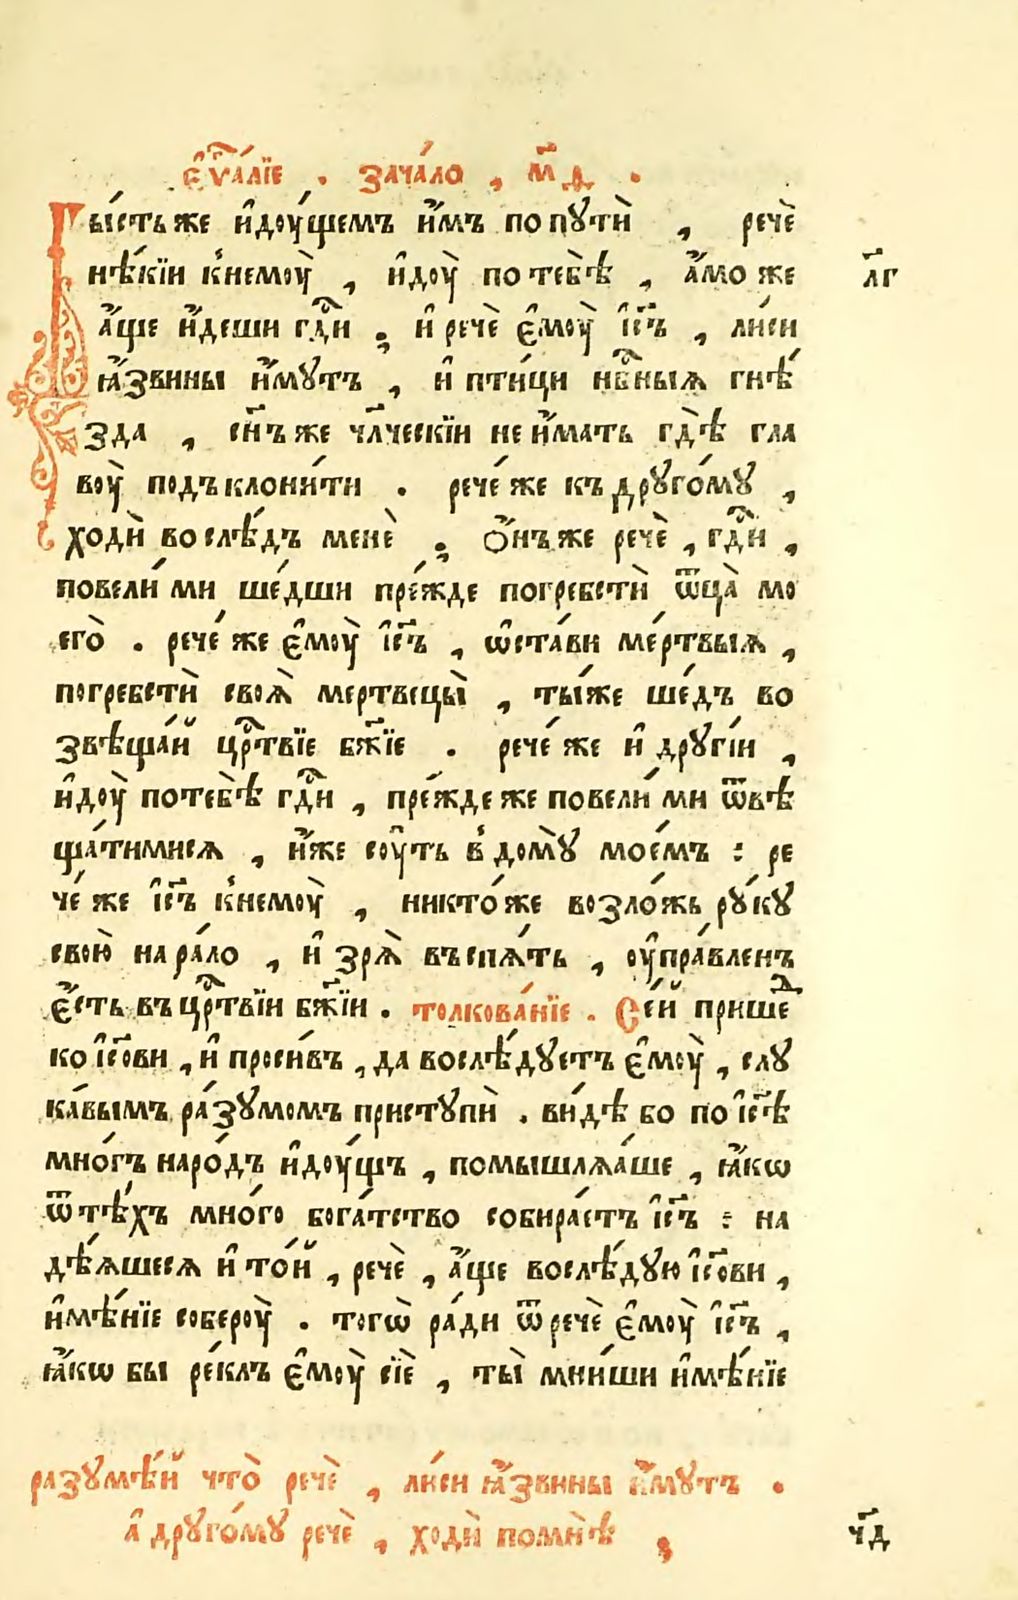 е҆ѵⷢ҇а́лїе . зача́ло , м҃д .
Бы́стьже и҆доу́щемъ и҆̀мъ попутѝ , речѐ
нѣ́кїи к̾немоу̀ , и҆доу̀ потебѣ̀ , а҆́може лг҃
а҆́ще и҆́деши гдⷭ҇и ; и҆ речѐ є҆моу̀ і҆с҃ъ , ли́си
ꙗ҆́звины и҆́мутъ , и҆ пти́ци нб҃ныѧ гнѣ́
зда , сн҃ъже чл҃ческїи неи҆́мать гдѣ̀ гла
воу̀ подъклони́ти . рече́же къдруго́му ,
ходѝ вослѣ́дъ менѐ ; Ѻ҆́нъже речѐ , гдⷭ҇и ,
повели́ми ше́дши пре́жде погребстѝ ѿц҃а̀ мо
его̀ . рече́же є҆моу̀ і҆с҃ъ , ѡ҆ста́ви ме́ртвыѧ ,
погребстѝ своѧ̀ мертвецы̀ , ты́же ше́дъ во
звѣща́й црⷭ҇твїе бж҃їе . рече́же и҆ другі́и ,
и҆доу̀ потебѣ̀ гдⷭ҇и , пре́ждеже повели́ми ѿвѣ
ща́тимисѧ , и҆́же соу́ть в̾дому̀ мое́мъ : ре
че́же і҆с҃ъ к̾немоу̀ , никто́же возло́жь ру́ку
свою̀ нара́ло , и҆ зрѧ̀ въспѧ́ть , оу҆пра́вленъ
є҆́сть въцрⷭ҇твїи бж҃їи . толкова́нїе . Се́й прише́ⷣ
коі҆с҃ови , и҆ проси́въ , да вослѣ́дуетъ є҆моу̀ , слу
ка́вымъ ра́зумомъ приступѝ . ви́дѣ бо поі҆с҃ѣ
мно́гъ наро́дъ и҆доу́щъ , помышлѧ́аше , ꙗ҆́кѡ
ѿтѣ́хъ мно́го бога́тство собира́етъ і҆с҃ъ : на
дѣ́ѧшесѧ и҆ то́й , речѐ , а҆́ще вослѣ́дую і҆с҃ови ,
и҆мѣ́нїе собероу̀ . тогѡ̀ ра́ди ѿречѐ є҆моу̀ і҆с҃ъ ,
ꙗ҆́кѡ бы ре́клъ є҆моу̀ сїѐ , ты̀ мни́ши и҆мѣ́нїе
разумѣ́й что̀ речѐ , ли́си ꙗ҆́звины и҆́мутъ .
а҆ друго́му речѐ , ходѝ помнѣ̀ ; ч҃д